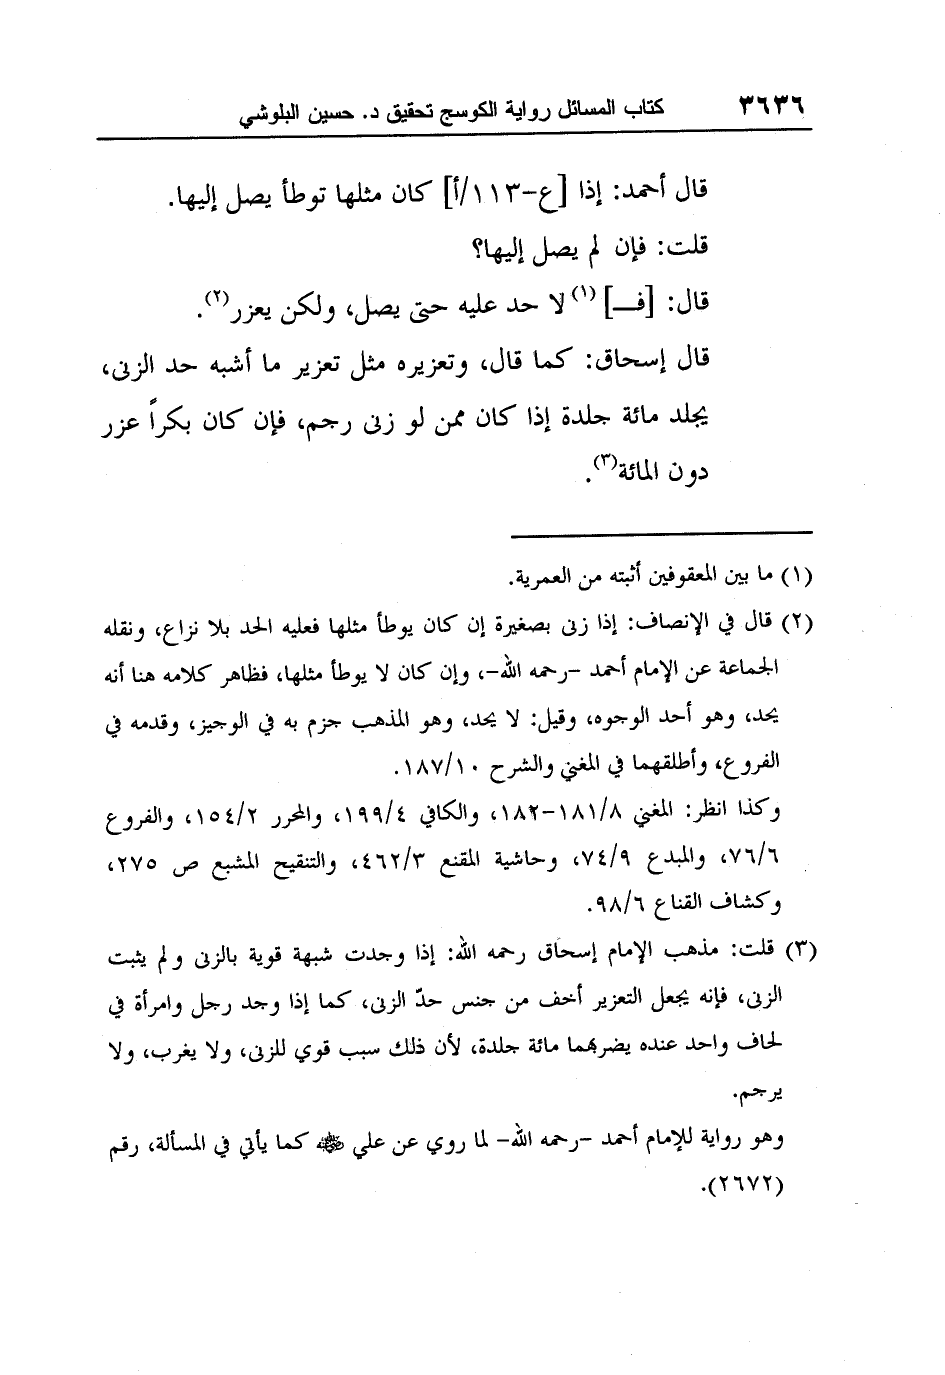 ٣٦٣٦ كتاب المسائل رواية الكوسج تحقيق د. حسين البلوشي
قال أحمد: إذا [ع-١١٣/أ] كان مثلها توطأ يصل إليها.
قلت: فإن لم يصل إليها؟
قال: [فـ] (١) لا حد عليه حتى يصل، ولكن يعزر(٢).
قال إسحاق: كما قال، وتعزيره مثل تعزير ما أشبه حد الزنى،
يجلد مائة جلدة إذا كان ممن لو زنى رجم، فإن كان بكراً عزر
دون المائة(٣).
(١) ما بين المعقوفين أثبته من العمرية.
(٢) قال في الإنصاف: إذا زنى بصغيرة إن كان يوطأ مثلها فعليه الحد بلا نزاع، ونقله
الجماعة عن الإمام أحمد -رحمه الله-، وإن كان لا يوطأ مثلها، فظاهر كلامه هنا أنه
يحد، وهو أحد الوجوه، وقيل: لا يحد، وهو المذهب جزم به في الوجيز، وقدمه في
الفروع، وأطلقهما في المغني والشرح ١٨٧/١٠.
وكذا انظر: المغني ١٨١/٨-١٨٢، والكافي ١٩٩/٤، والمحرر ١٥٤/٢، والفروع
٧٦/٦، والمبدع ٧٤/٩، وحاشية المقنع ٤٦٢/٣، والتنقيح المشبع ص ٢٧٥،
وكشاف القناع ٩٨/٦.
(٣) قلت: مذهب الإمام إسحاق رحمه الله: إذا وجدت شبهة قوية بالزنى ولم يثبت
الزنى، فإنه يجعل التعزير أخف من جنس حدّ الزنى، كما إذا وجد رجل وامرأة في
لحاف واحد عنده يضربهما مائة جلدة، لأن ذلك سبب قوي للزنى، ولا يغرب، ولا
يرجم.
وهو رواية للإمام أحمد -رحمه الله- لما روي عن علي ﷺ كما يأتي في المسألة، رقم
(٢٦٧٢).